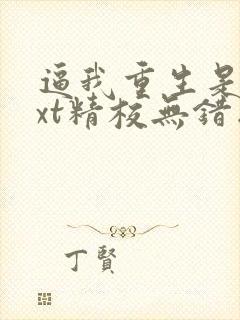 逼我重生是
xt精校無錯
丁賢